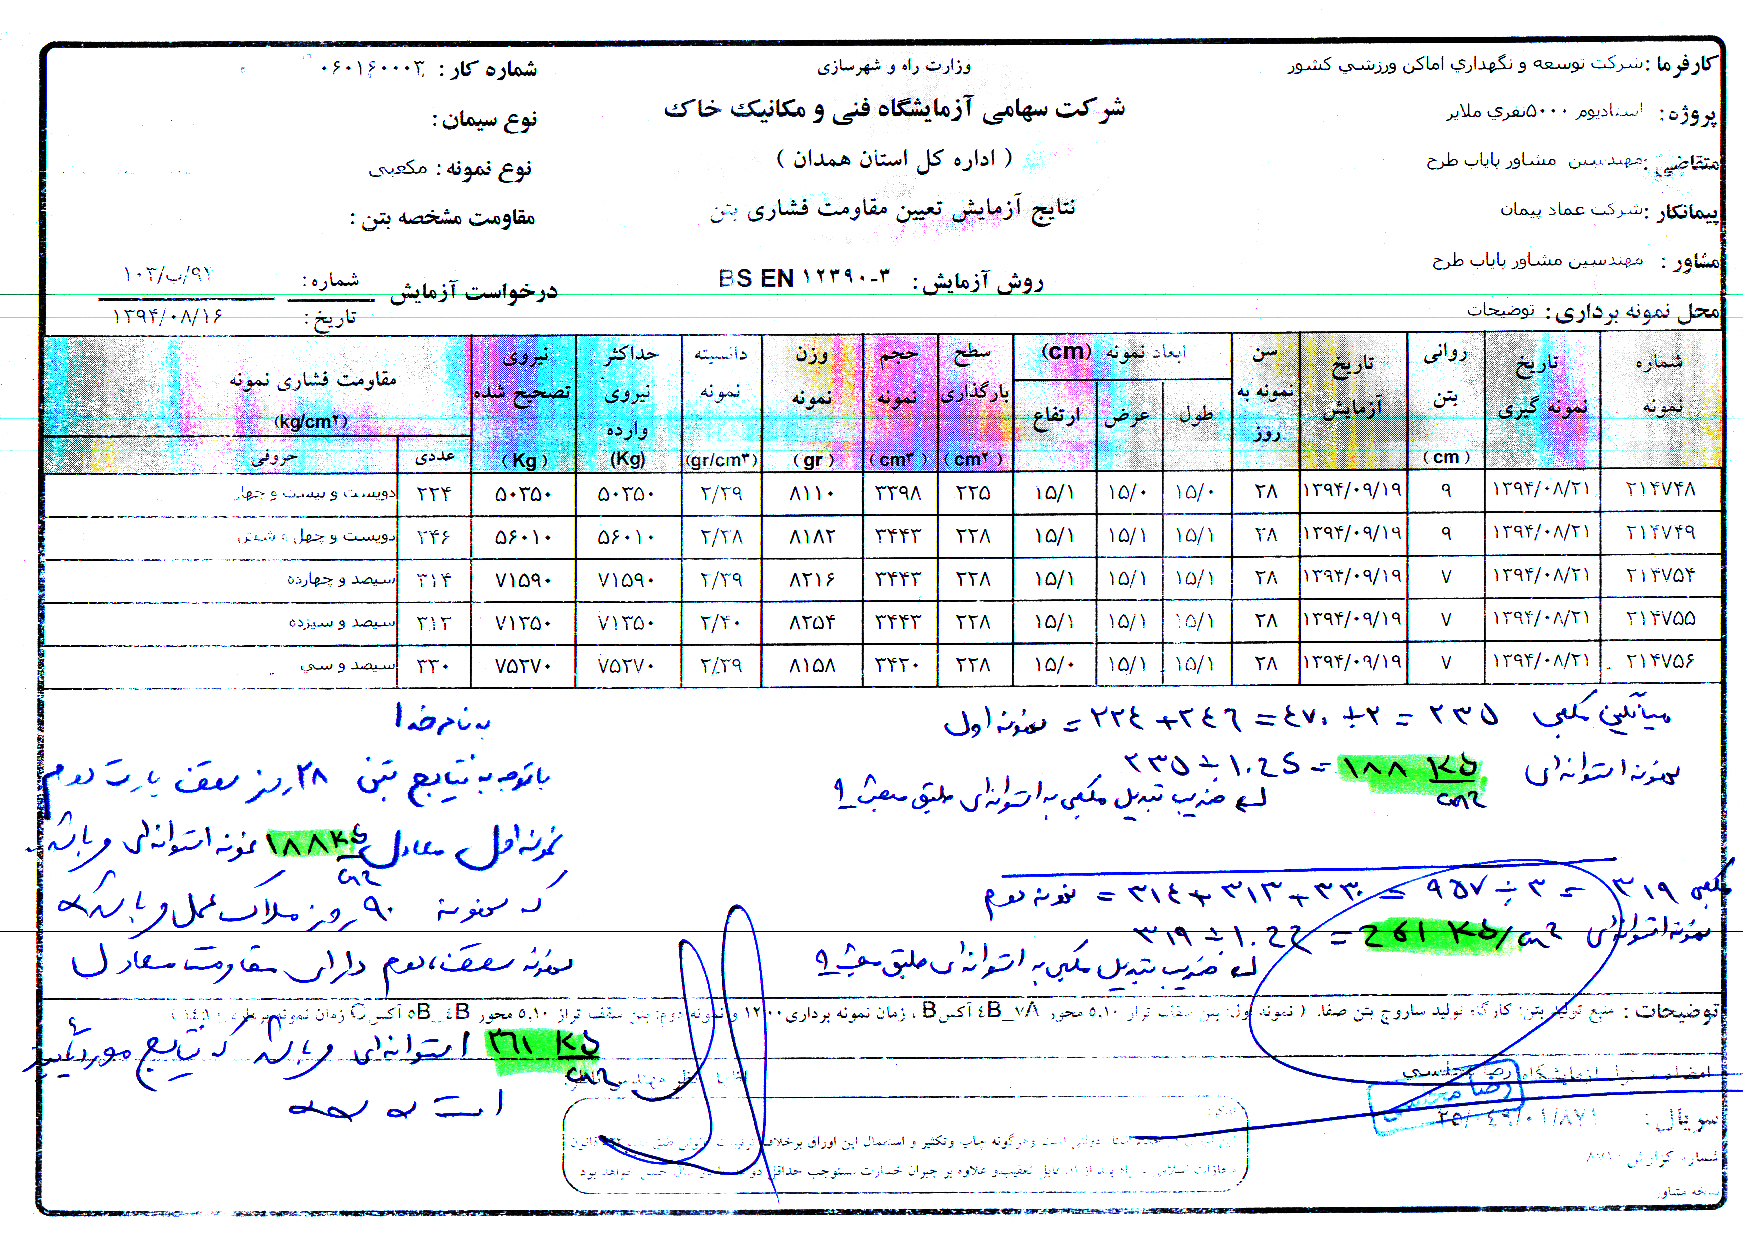 کارفرما : شرکت توسعه و نگهداري اماکن ورزشي کشور
پروژه : استادیوم ۵۰۰۰نفري ملایر
متقاضی : مهندسین مشاور پایاب طرح
پیمانکار : شرکت عماد پیمان
مشاور : مهندسین مشاور پایاب طرح
محل نمونه برداری : توضیحات
وزارت راه و شهرسازی
شرکت سهامی آزمایشگاه فنی و مکانیک خاک
( اداره کل استان همدان )
نتایج آزمایش تعیین مقاومت فشاری بتن
روش آزمایش : BS EN ۱۲۳۹۰-۳
شماره کار : ۰۶۰۱۶۰۰۰۳
نوع سیمان :
نوع نمونه : مکعبی
مقاومت مشخصه بتن :
درخواست آزمایش
شماره : ۱۰۳/ب/۹۲
تاریخ : ۱۳۹۴/۰۸/۱۶
شماره نمونه | تاریخ نمونه گیری | روانی بتن (cm) | تاریخ آزمایش | سن نمونه به روز | ابعاد نمونه (cm) طول عرض ارتفاع | سطح بارگذاری (cm۲) | حجم نمونه (cm۳) | وزن نمونه (gr) | دانسیته نمونه (gr/cm۳) | حداکثر نیروی وارده (Kg) | نیروی تصحیح شده (Kg) | مقاومت فشاری نمونه (kg/cm۲) عددی حروفی
۲۱۴۷۴۸ | ۱۳۹۴/۰۸/۲۱ | ۹ | ۱۳۹۴/۰۹/۱۹ | ۲۸ | ۱۵/۰ | ۱۵/۰ | ۱۵/۱ | ۲۲۵ | ۳۳۹۸ | ۸۱۱۰ | ۲/۳۹ | ۵۰۳۵۰ | ۵۰۳۵۰ | ۲۲۴ | دویست و بیست و چهار
۲۱۴۷۴۹ | ۱۳۹۴/۰۸/۲۱ | ۹ | ۱۳۹۴/۰۹/۱۹ | ۲۸ | ۱۵/۱ | ۱۵/۱ | ۱۵/۱ | ۲۲۸ | ۳۴۴۳ | ۸۱۸۲ | ۲/۳۸ | ۵۶۰۱۰ | ۵۶۰۱۰ | ۲۴۶ | دویست و چهل و شش
۲۱۴۷۵۴ | ۱۳۹۴/۰۸/۲۱ | ۷ | ۱۳۹۴/۰۹/۱۹ | ۲۸ | ۱۵/۱ | ۱۵/۱ | ۱۵/۱ | ۲۲۸ | ۳۴۴۳ | ۸۲۱۶ | ۲/۳۹ | ۷۱۵۹۰ | ۷۱۵۹۰ | ۳۱۴ | سیصد و چهارده
۲۱۴۷۵۵ | ۱۳۹۴/۰۸/۲۱ | ۷ | ۱۳۹۴/۰۹/۱۹ | ۲۸ | ۱۵/۱ | ۱۵/۱ | ۱۵/۱ | ۲۲۸ | ۳۴۴۳ | ۸۲۵۴ | ۲/۴۰ | ۷۱۳۵۰ | ۷۱۳۵۰ | ۳۱۳ | سیصد و سیزده
۲۱۴۷۵۶ | ۱۳۹۴/۰۸/۲۱ | ۷ | ۱۳۹۴/۰۹/۱۹ | ۲۸ | ۱۵/۱ | ۱۵/۱ | ۱۵/۰ | ۲۲۸ | ۳۴۲۰ | ۸۱۵۸ | ۲/۳۹ | ۷۵۲۷۰ | ۷۵۲۷۰ | ۳۳۰ | سیصد و سي
میانگین مکعبی ۲۳۵ = ۲ ÷ ۴۷۰ = ۲۴۶ + ۲۲۴ = نمونه اول
نمونه استوانه‌ای ۱۸۸ KG/cm2 = ۲۳۵ ÷ 1.25
ضریب تبدیل مکعبی به استوانه‌ای طبق مبحث ۹
مکعبی ۳۱۹ = ۳ ÷ ۹۵۷ = ۳۳۰ + ۳۱۳ + ۳۱۴ = نمونه دوم
نمونه استوانه‌ای 261 KG/cm2 = ۳۱۹ ÷ 1.22
ضریب تبدیل مکعبی به استوانه‌ای طبق مبحث ۹
به نام خدا
با توجه به نتایج بتن ۲۸ روز سقف پارت دوم
نمونه اول معادل ۱۸۸ KG/cm2 نمونه استوانه‌ای می باشد
که نمونه ۹۰ روز ملاک عمل می باشد
نمونه سقف دوم دارای مقاومت معادل
۲۶۱ KG/cm2 استوانه‌ای می باشد که نتایج مورد تأیید
است
توضیحات : منبع تولید بتن: کارگاه تولید ساروج بتن صفا. ( نمونه اول: بتن سقف تراز ۵.۱۰ محور ۴B_۷/۸ آکس B ، زمان نمونه برداری ۱۲:۰۰ و نمونه دوم: بتن سقف تراز ۵.۱۰ محور ۴B_۵B آکس C زمان نمونه
آزمایشگاه رضا مجلسی
سریال :
شماره گزارش
نسخه مشاور